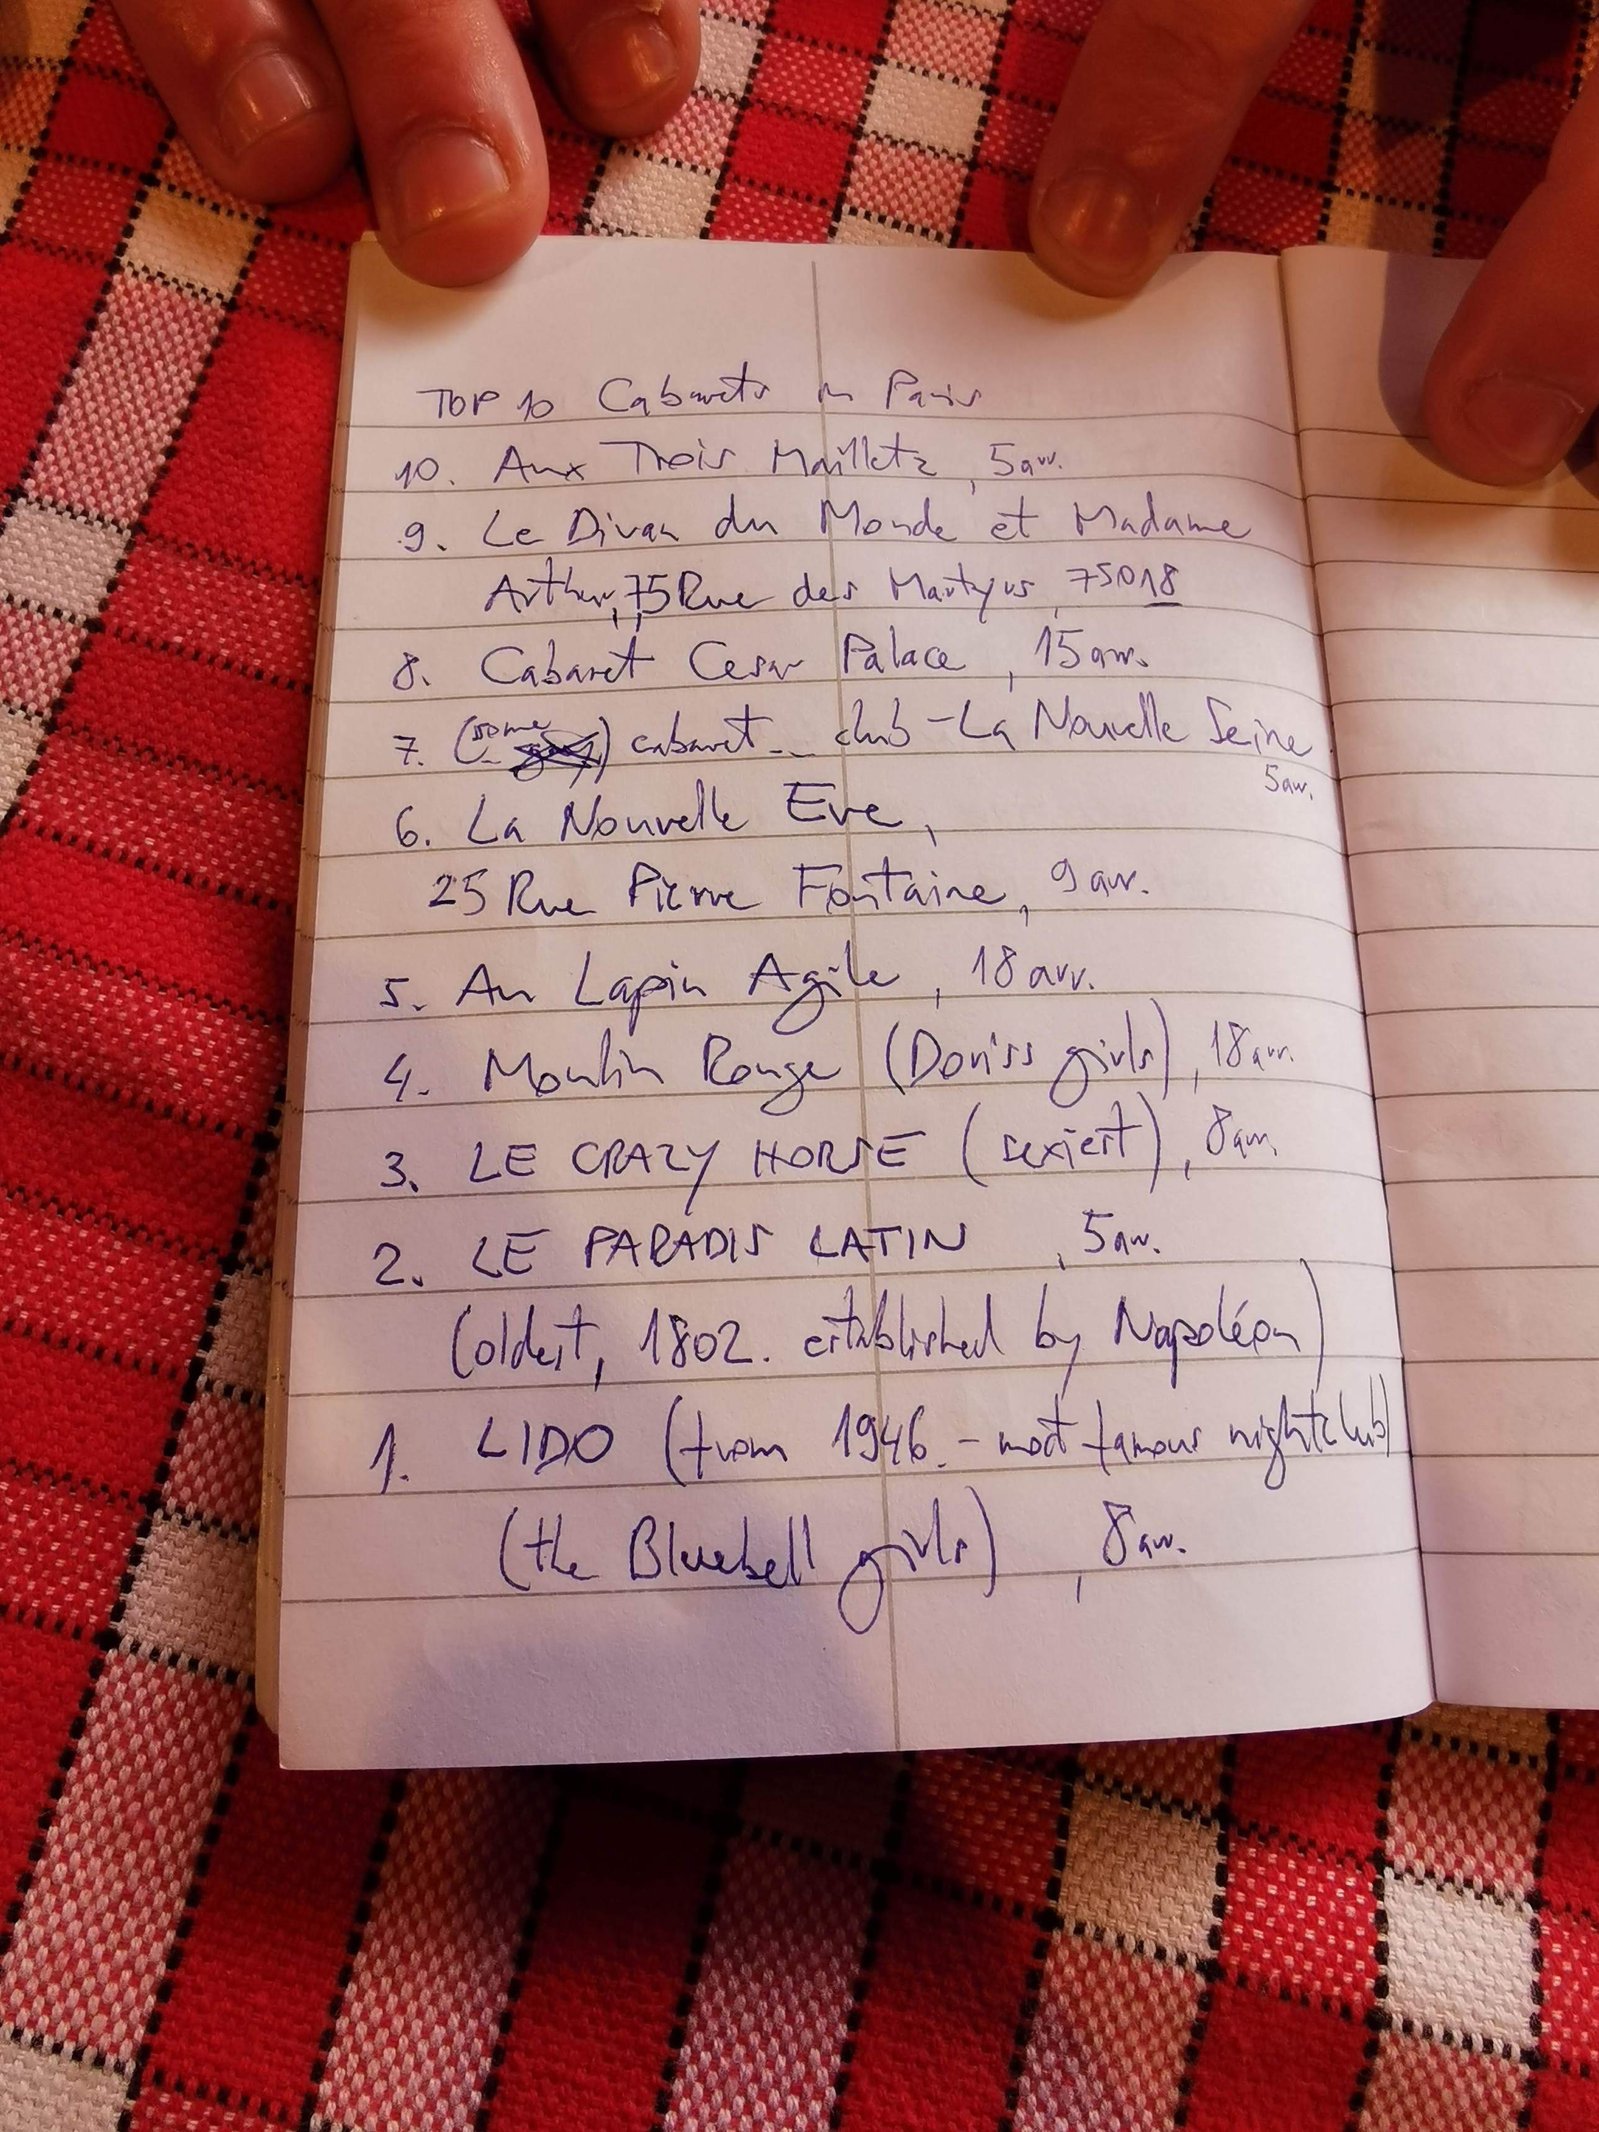 TOP 10 Cabarets in Paris
10. Aux Trois Mailletz, 5arr.
9. Le Divan du Monde et Madame
Arthur, 75 Rue des Martyrs, 75018
8. Cabaret Cesar Palace, 15arr.
7. (some) cabaret club - La Nouvelle Seine
5arr.
6. La Nouvelle Eve,
25 Rue Pierre Fontaine, 9arr.
5. Au Lapin Agile, 18arr.
4. Moulin Rouge (Doriss girls), 18arr.
3. LE CRAZY HORSE (sexiest), 8arr.
2. LE PARADIS LATIN, 5arr.
(oldest, 1802. established by Napoléon)
1. LIDO (from 1946. - most famous nightclub)
(the Bluebell girls), 8arr.